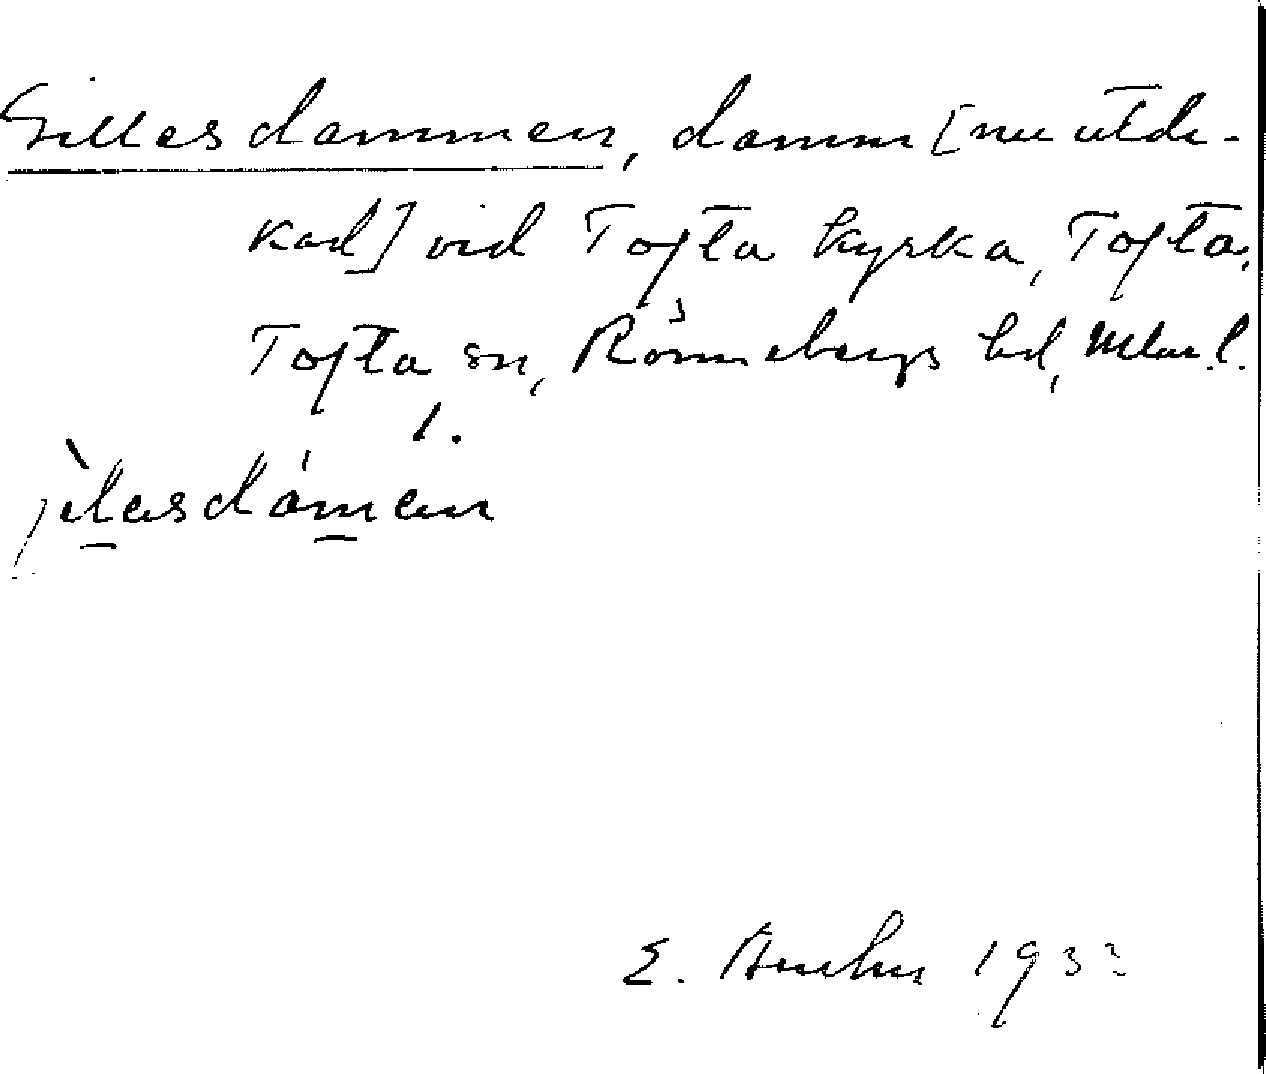 Gillesdammen, damm [nu utdi-
kad] vid Tofta kyrka, Tofta,
Tofta sn, Rönnebergs hd, Malm. l.
1.
jìlesdámen
E. 193